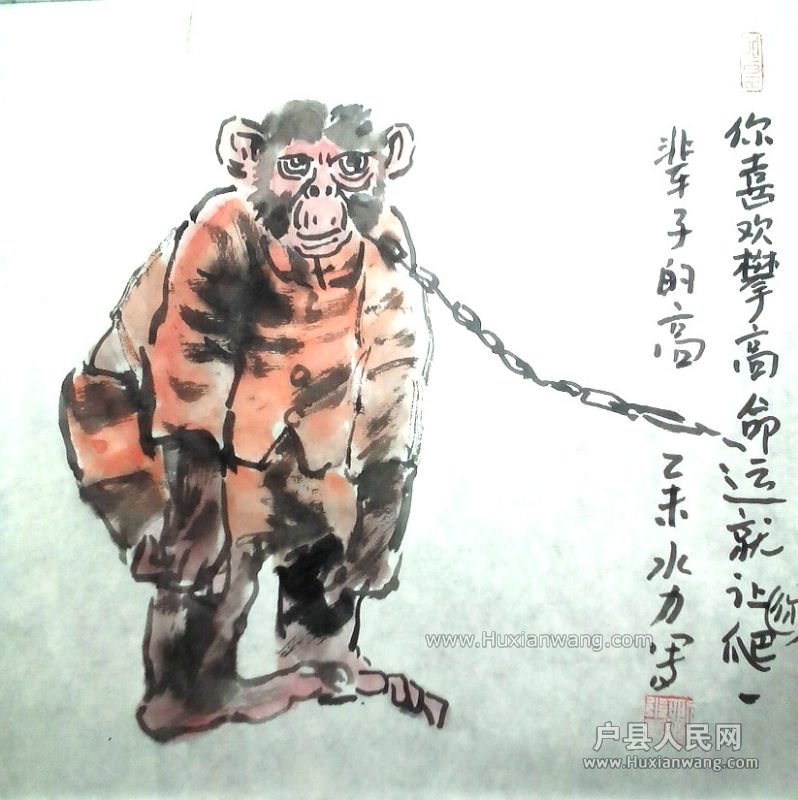 你喜欢攀高命运就让(你)爬一
辈子的高
乙未水力写
www.Huxianwang.com
户县人民网
www.Huxianwang.com